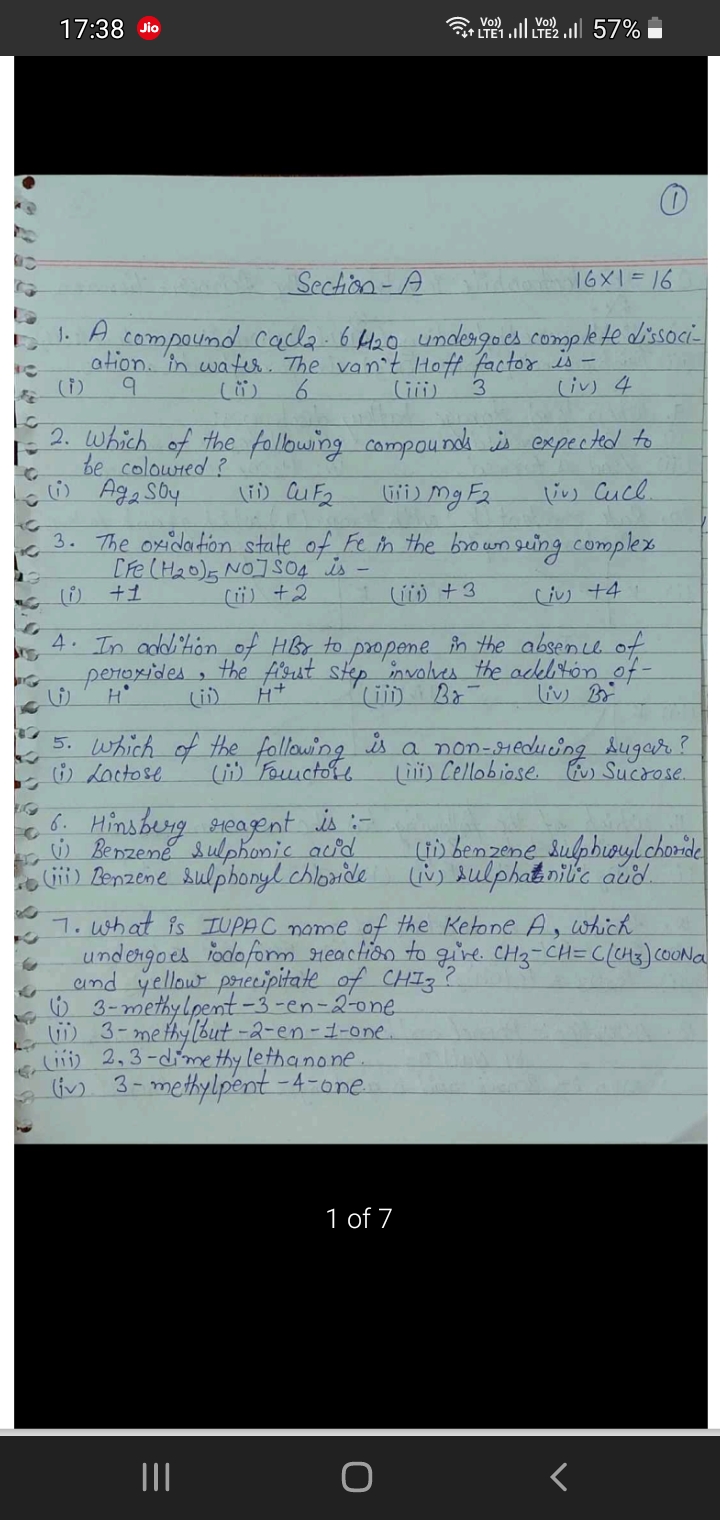 17:38 Jio Vo)) LTE1 Vo)) LTE2 57%
1
Section - A 16×1=16
1. A compound CaCl2 . 6 H2O undergoes complete dissoci-
ation. in water. The van't Hoff factor is -
(i) 9 (ii) 6 (iii) 3 (iv) 4
2. Which of the following compounds is expected to
be coloured ?
(i) Ag2SO4 (ii) CuF2 (iii) MgF2 (iv) CuCl.
3. The oxidation state of Fe in the brown ring complex
[Fe(H2O)5 NO]SO4 is -
(i) +1 (ii) +2 (iii) +3 (iv) +4
4. In addition of HBr to propene in the absence of
peroxides, the first step involves the addition of-
(i) H• (ii) H+ (iii) Br- (iv) Br•
5. Which of the following is a non-reducing sugar?
(i) Lactose (ii) Fructose (iii) Cellobiose. (iv) Sucrose.
6. Hinsberg reagent is :-
(i) Benzene sulphonic acid (ii) benzene
(iii) Benzene sulphonyl chloride (iv) acid.
7. What is IUPAC name of the Ketone A, which
undergoes iodoform reaction to give. CH3-CH=C(CH3)COONa
and yellow precipitate of CHI3 ?
(i) 3-methylpent-3-en-2-one
(ii) 3-methylbut-2-en-1-one.
(iii) 2,3-dimethylethanone.
(iv) 3-methylpent-4-one.
1 of 7